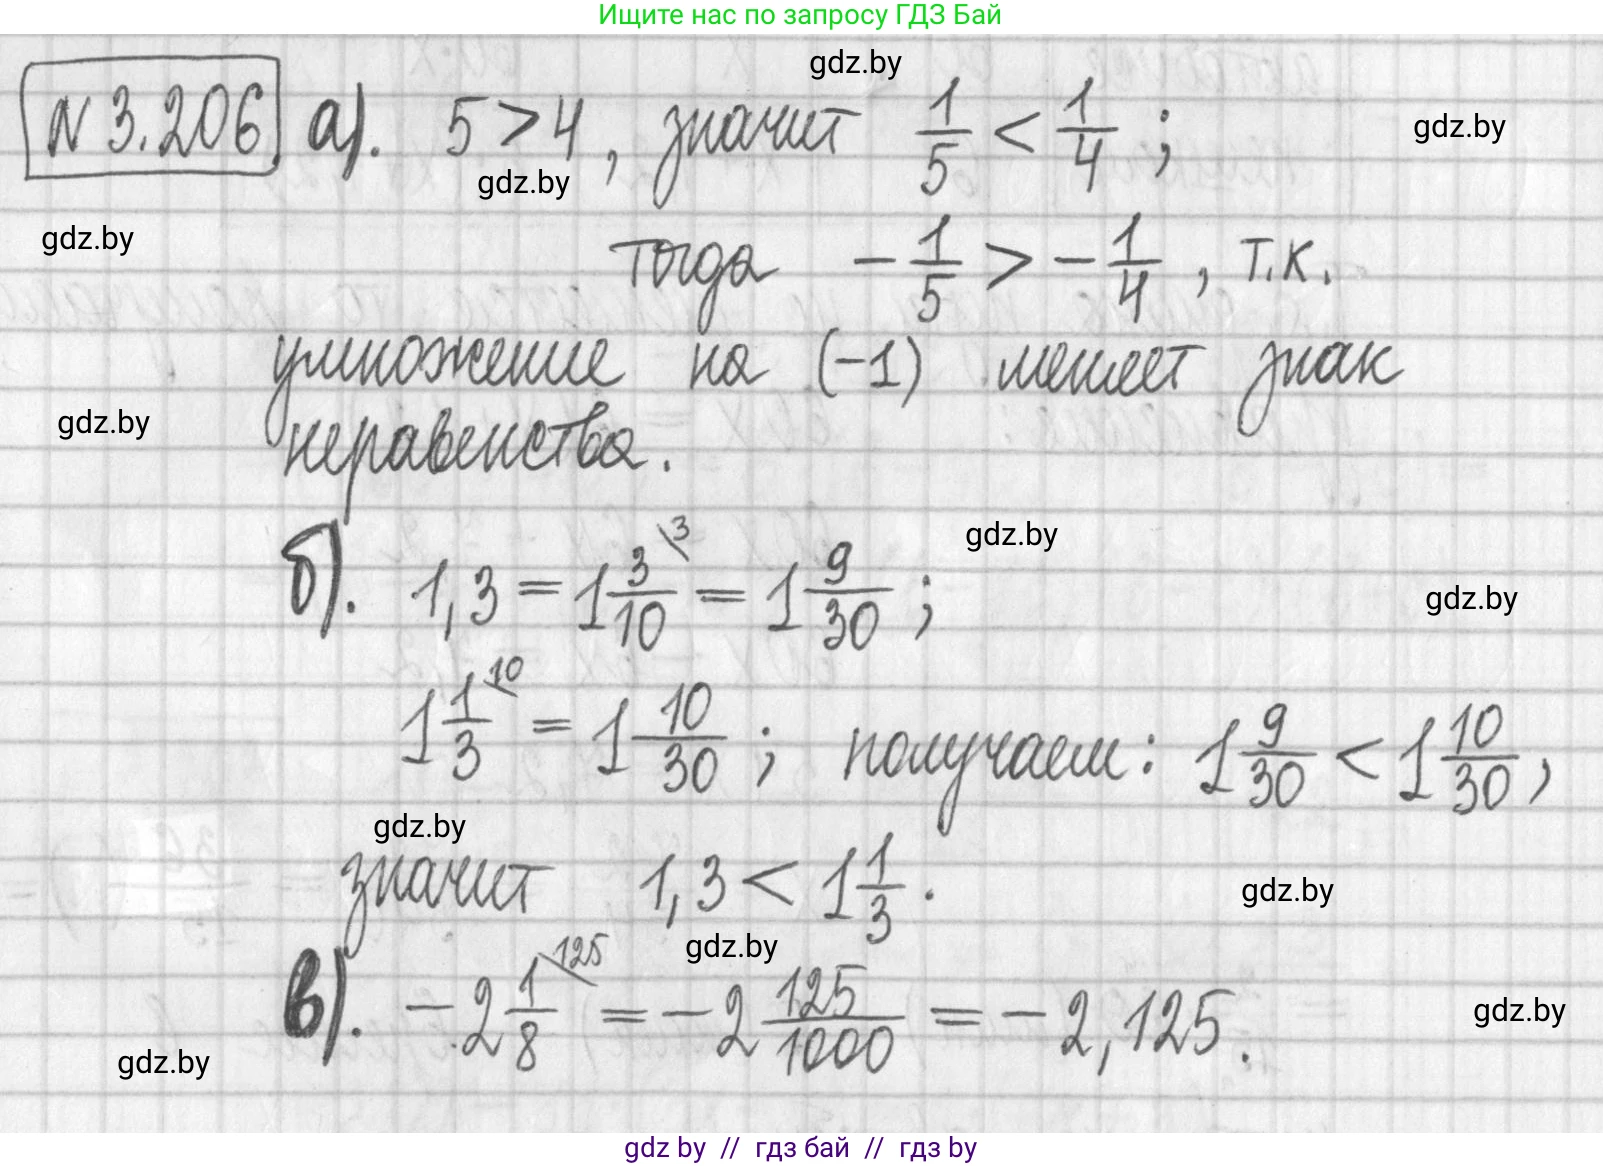 Ищите нас по запросу ГДЗ Бай
gdz.by
N 3.206 а). 5 > 4, значит 1/5 < 1/4 ;
gdz.by
gdz.by
gdz.by
тогда -1/5 > -1/4, т.к.
умножение на (-1) меняет знак
gdz.by
неравенства.
gdz.by
б). 1,3 = 1 3/10 \3 = 1 9/30 ;
gdz.by
1 1/3 \10 = 1 10/30 ; получаем: 1 9/30 < 1 10/30 ,
gdz.by
значит 1,3 < 1 1/3 .
gdz.by
gdz.by
в). -2 1/8 \125 = -2 125/1000 = -2,125.
gdz.by
gdz.by
gdz by // гдз бай // гдз by